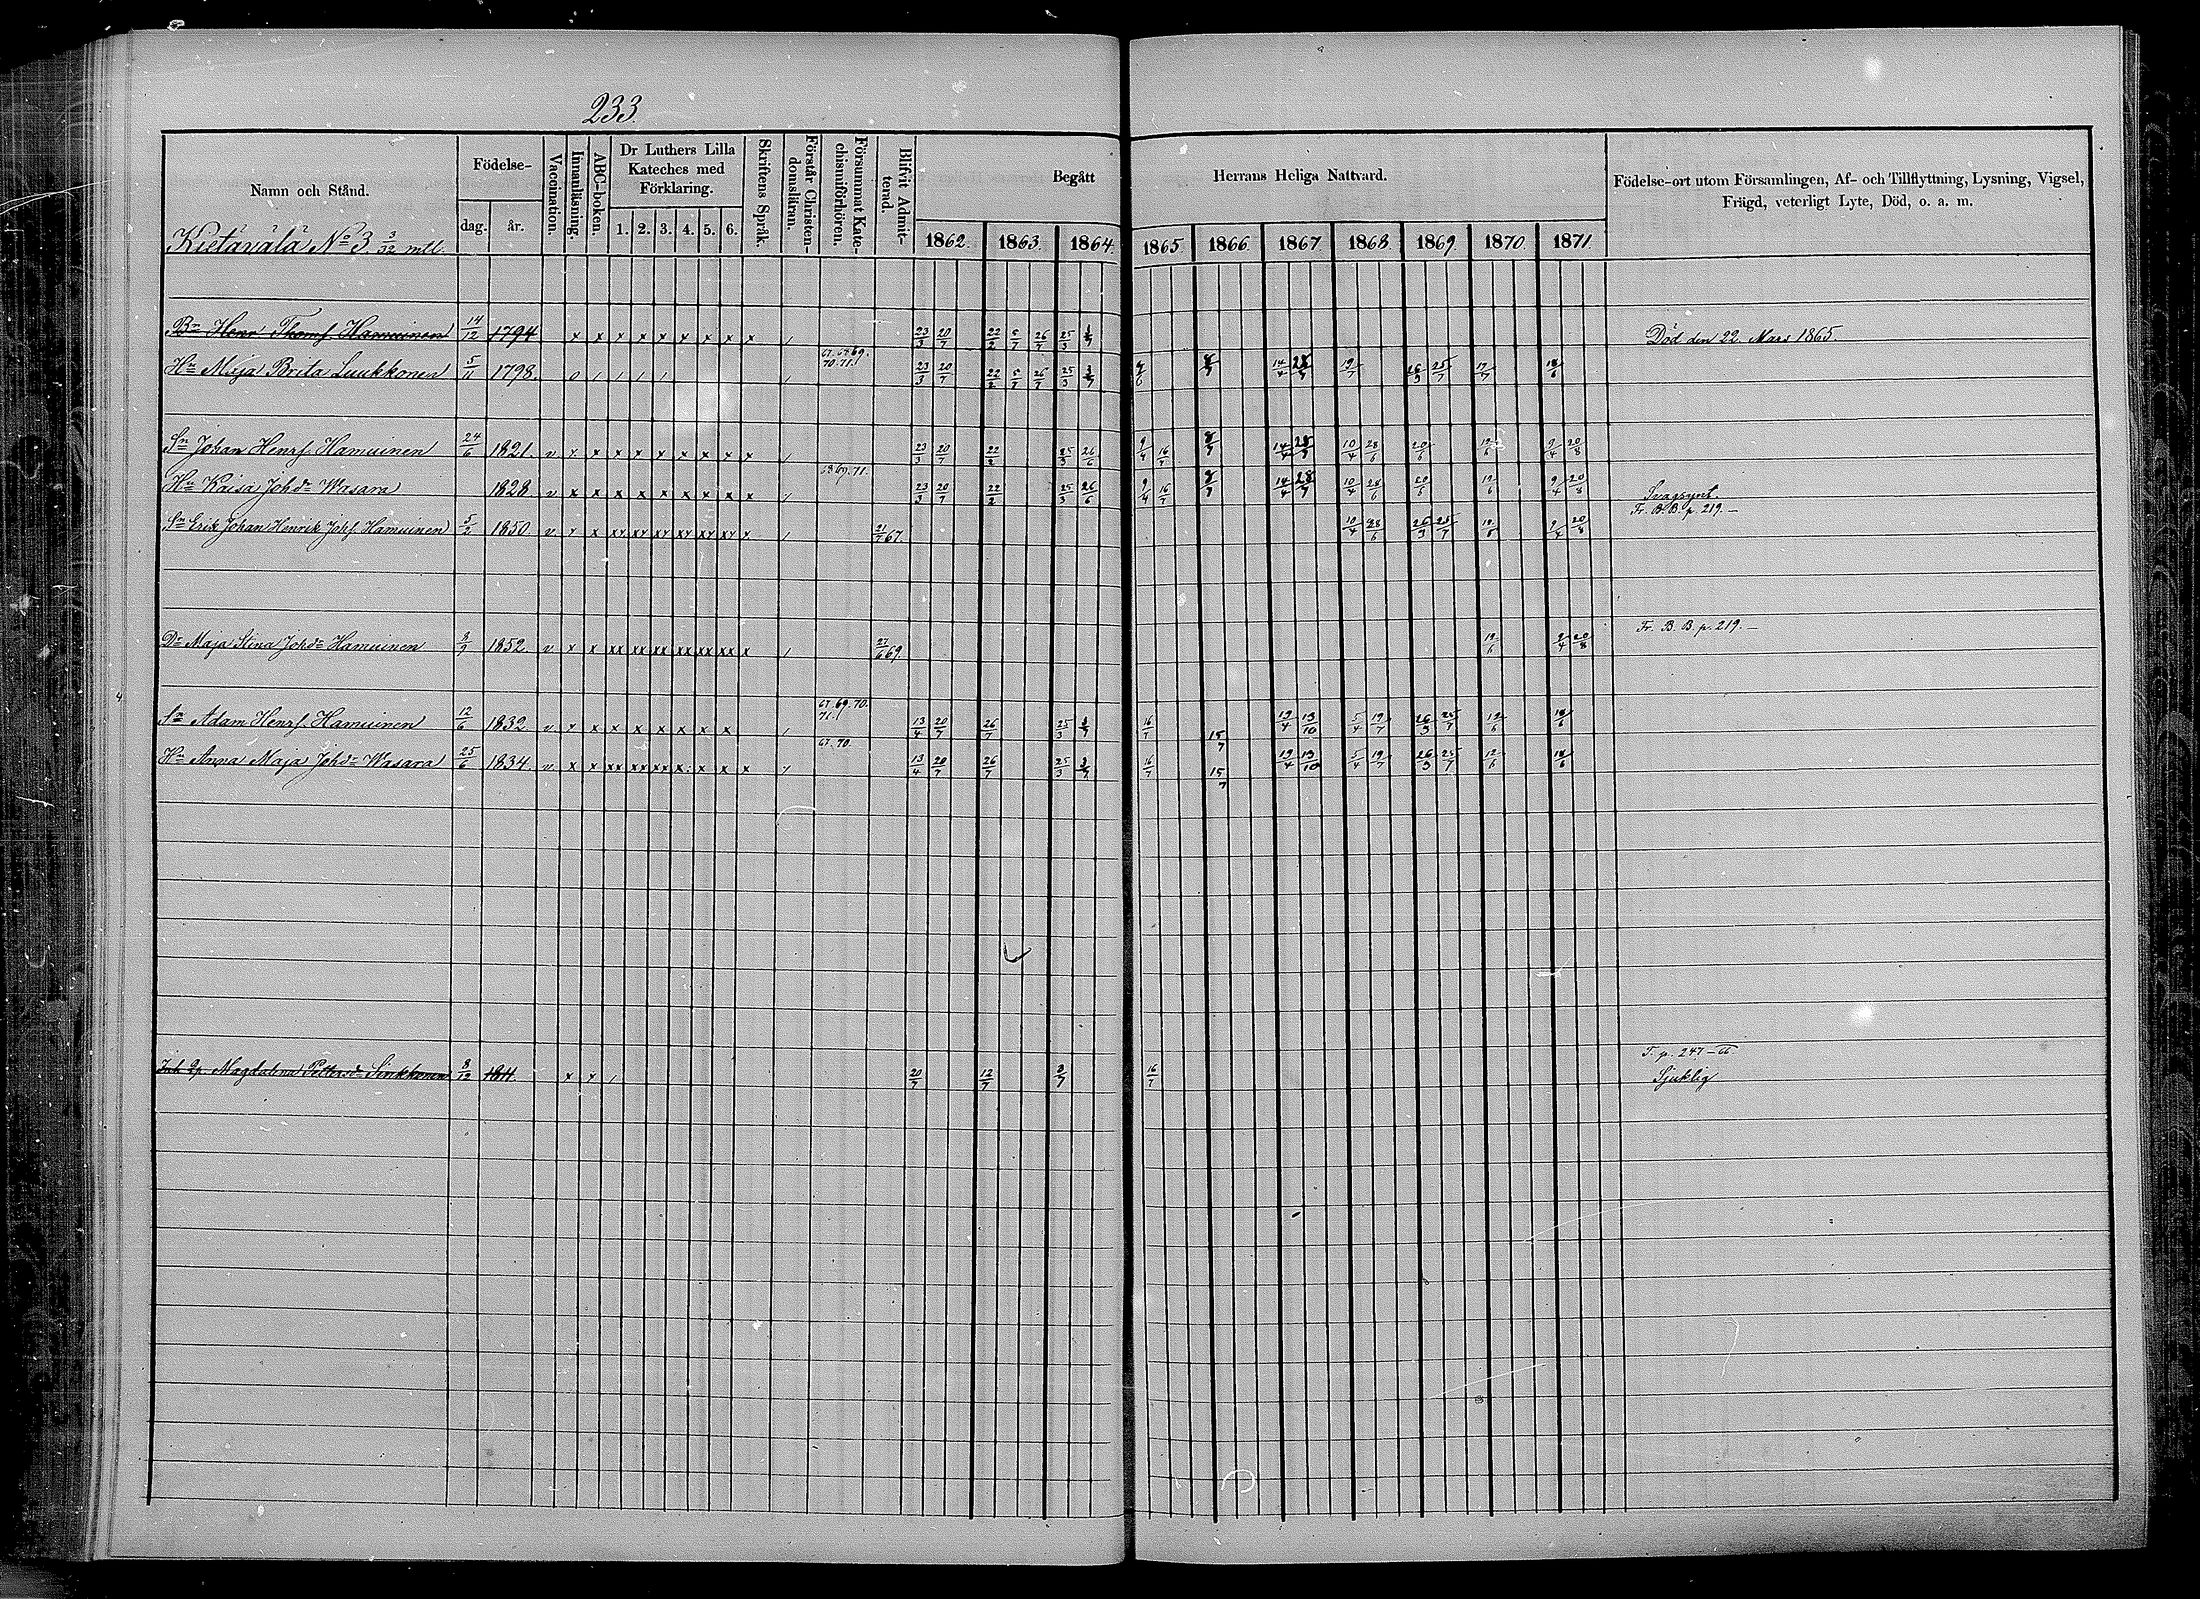 233.
Namn och Stånd.
Födelse-
dag.
år.
Vaccination.
Innanläsning.
ABC-boken.
Dr Luthers Lilla
Kateches med
Förklaring.
1. 2. 3. 4. 5. 6.
Skriftens Språk.
Förstår Christen-
domsläran.
Försummat Kate-
chismiförhören.
Blifvit Admit-
terad.
Begått Herrans Heliga Nattvard.
1862. 1863. 1864. 1865. 1866. 1867. 1868. 1869. 1870. 1871.
Födelse-ort utom Församlingen, Af- och Tillflyttning, Lysning, Vigsel,
Frägd, veterligt Lyte, Död, o. a. m.
Kietävälä No 3. 3/32 mtl.
Bn Henr Thomss. Hamuinen 14/12 1794 x x x x x x x x x / 23/3 20/7 22/2 5/7 26/7 25/3 Död den 22 Mars 1865.
67. 69.
70. 71.
Hu Maja Brita Luukkonen 5/11 1798. 0 / / / / / 23/3 20/7 22/2 5/7 26/7 25/3 3/7 14/4 28/7 19/7 26/3 25/7 17/7 18/6
Sn Johan Henrs. Hamuinen 24/6 1821. v x x x x x x x x x / 23/3 20/7 22/2 25/3 26/6 9/4 16/7 14/4 28/7 10/4 28/6 20/6 12/6 9/4 20/8
68. 69. 71.
Hu Kaisa Johdr Wasara 1828 v x x x x x x x x x / 23/3 20/7 22/2 25/3 26/6 9/4 16/7 14/4 28/7 10/4 28/6 20/6 12/6 9/4 20/8 Svagsynt.
Fr. B. B. p. 219. —
Sn Erik Johan Henrik Johs. Hamuinen 5/2 1850. v x x xx xx xx xx xx xx x / 21/7 67. 10/4 28/6 26/3 25/7 12/6 9/4 20/8
Fr. B. B. p. 219. —
Dr Maja Stina Johdr Hamuinen 8/9 1852. v x x xx xx xx xx xx xx x / 27/6 69. 12/6 9/4 20/8
67. 69. 70.
71.
Sn Adam Henrs. Hamuinen 12/6 1832 v x x x x x x x x / 13/4 20/7 26/7 25/3 3/7 16/7 15/7 19/4 13/10 5/4 19/7 26/3 25/7 12/6 18/6
67. 70.
Hu Anna Maja Johdr Wasara 25/6 1834. v x x xx xx xx x x x x 13/4 20/7 26/7 25/3 3/7 16/7 15/7 19/4 13/10 5/4 19/7 26/3 25/7 12/6 18/6
T. p. 247 —
Inh. Magdalena Pettersdr Sinkkonen 8/12 1811. x x / 20/7 12/7 3/7 16/7 Sjuklig